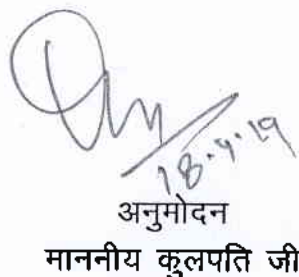 18.9.19
अनुमोदन
माननीय कुलपति जी